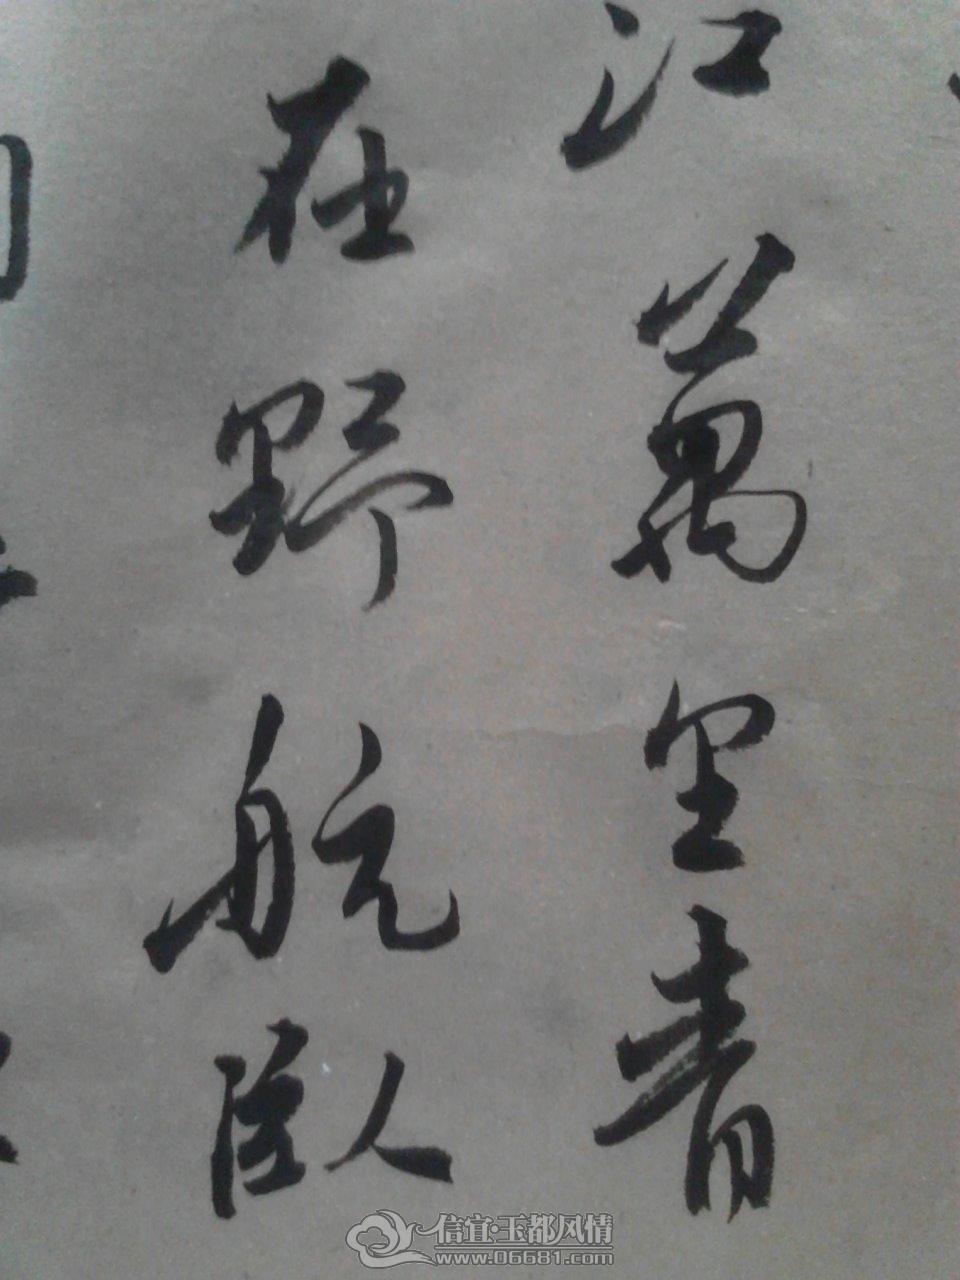 江萬里青
在野航臥
信宜·玉都风情
www.06681.com